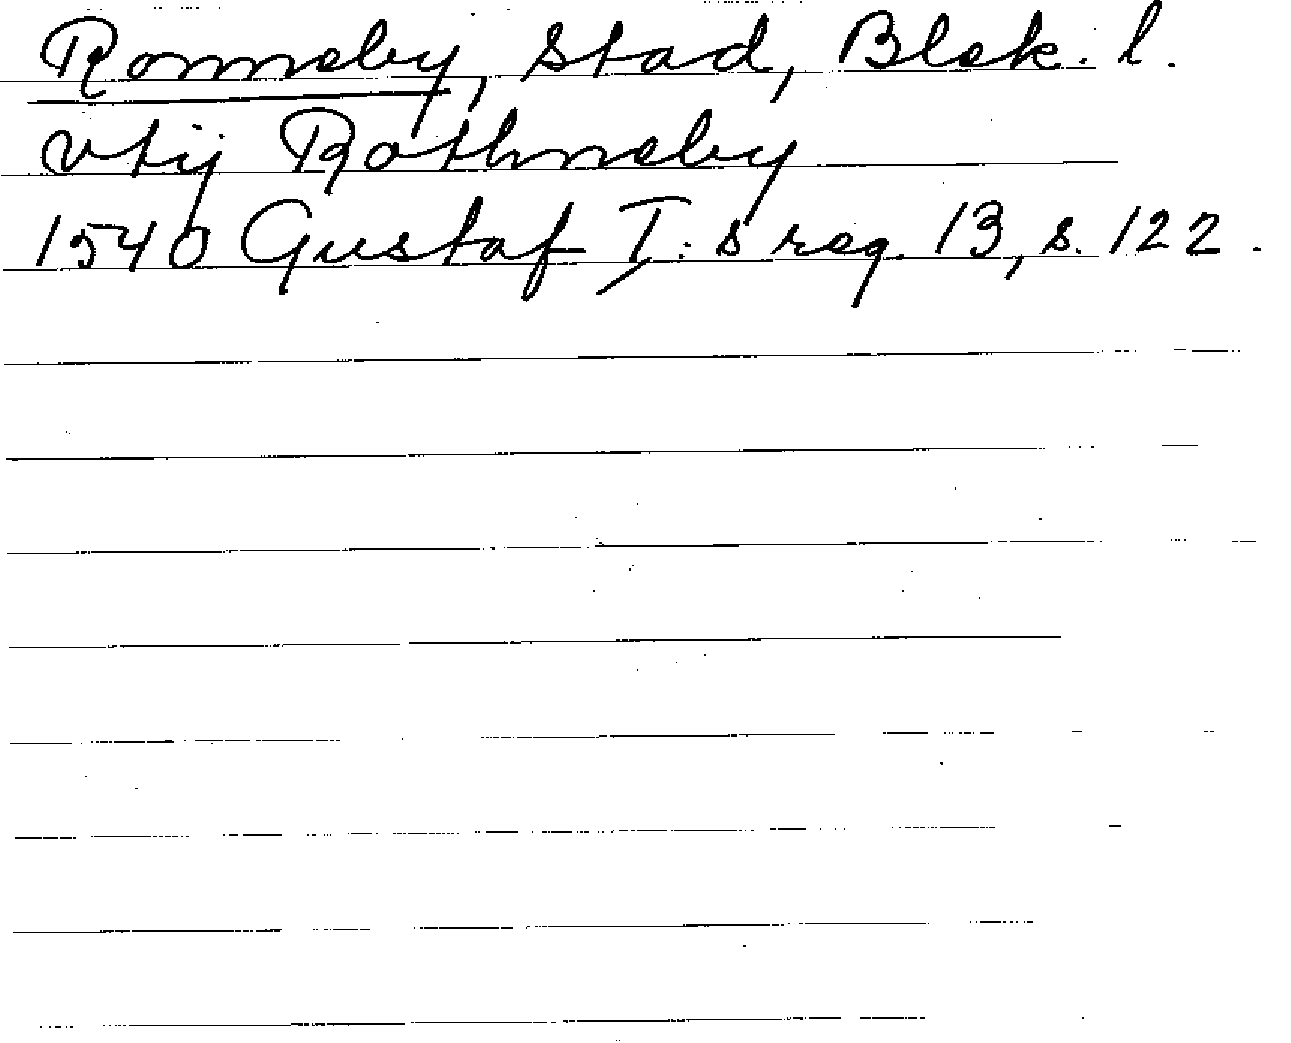 Ronneby, stad, Blek. l.
vtij Rothneby
1540 Gustaf I:s reg. 13, s. 122.